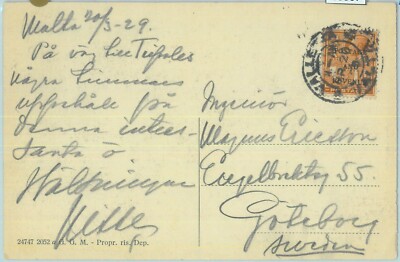 Malta 20/3-29.
På väg till Tripolis
några timmars
uppehåll på
denna intres-
santa ö
Hälsningar
24747 2052 a G. G. M. - Propr. ris. Dep.
VALLE
Ingeniör
Magnus Ericsson
Engelbrektsg 55.
Göteborg
Sweden